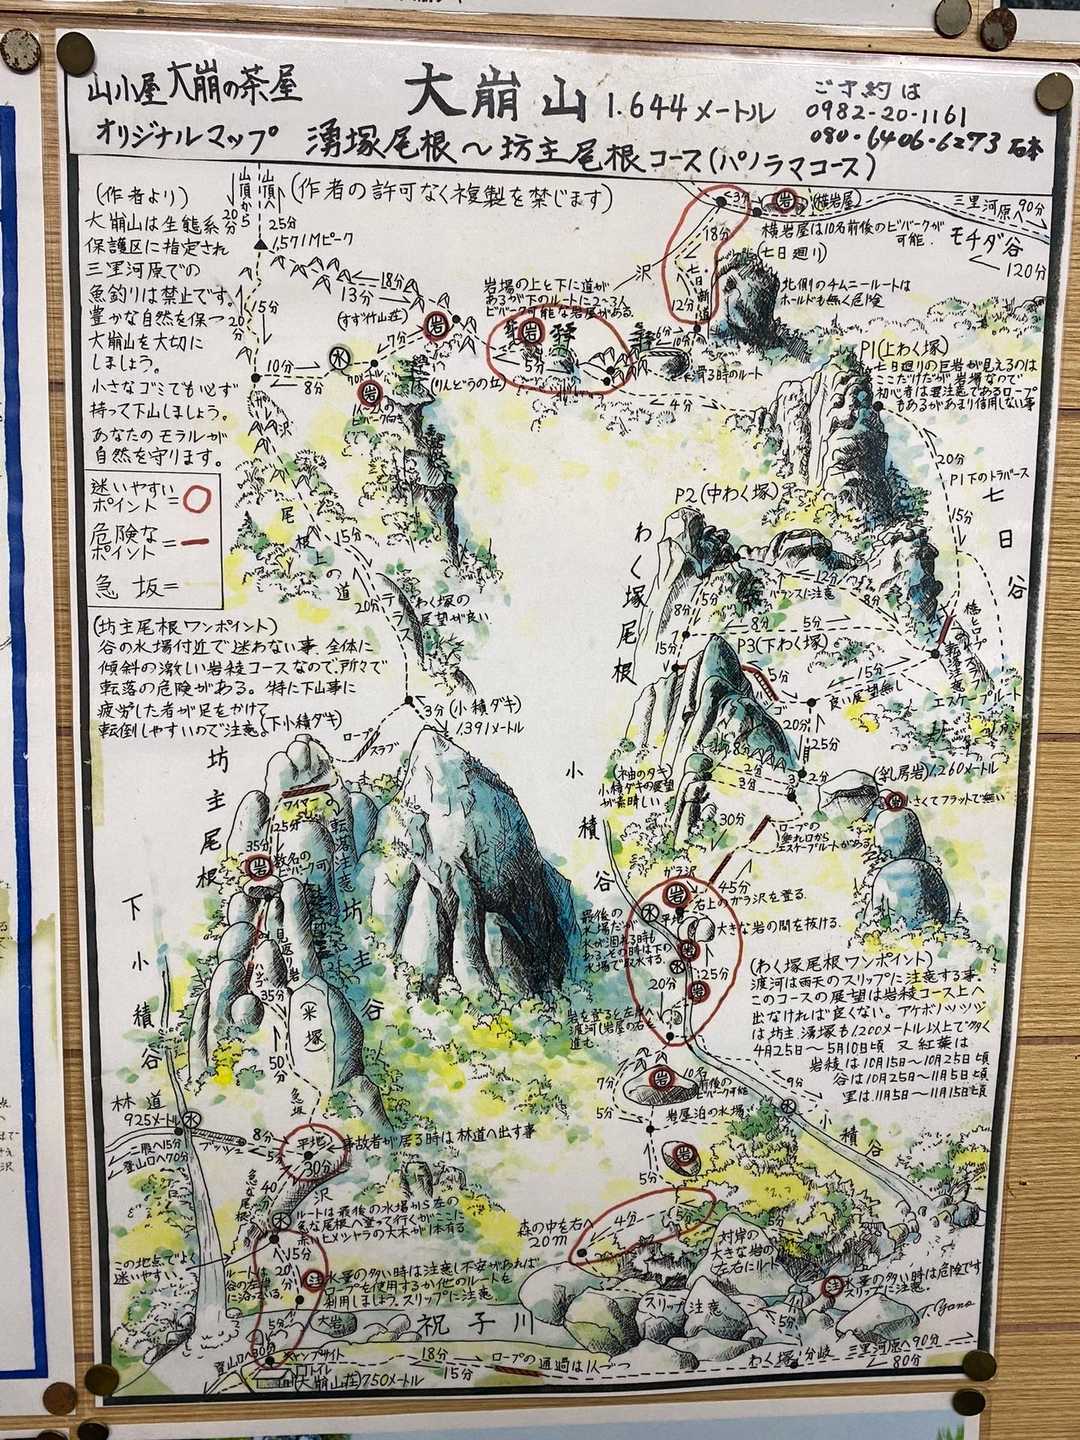 山小屋 大崩の茶屋
オリジナルマップ
大崩山 1.644メートル
湧塚尾根〜坊主尾根コース(パノラマコース)
ご予約は
0982-20-1161
080-6406-6273 石本
(作者より)
大崩山は生態系
保護区に指定され
三里河原での
魚釣りは禁止です。
豊かな自然を保つ
大崩山を大切に
しましょう。
小さなゴミでも必ず
持って下山しましょう。
あなたのモラルが
自然を守ります。
迷いやすい
ポイント=○
危険な
ポイント=
急 坂=
(坊主尾根ワンポイント)
谷の水場付近で迷わない事、全体に
傾斜の激しい岩稜コースなので、所々で
転落の危険がある。特に下山事に
疲労した者が足をかけて
転倒しやすいので注意
山頂から
20分
山頂へ
25分
(作者の許可なく複製を禁じます)
1,571Mピーク
18分
13分
(すず竹山荘)
15分
20分
10分
8分
水
7分
岩
沢
岩場の上と下に道が
あるが下のルートに2〜3人
ビバーク可能な岩屋がある。
岩
5分
(りんどうの丘)
沢
3分
18分
12分
岩
(横岩屋)
三里河原へ90分
横岩屋は10名前後のビバークが
可能.
モチダ谷
120分
(七日廻り)
北側のチムニールートは
ホールドも無く危険
6分
10分
4分
P1(上わく塚)
七日廻りの巨岩が見えるのは
ここだけだが岩場なので
初心者は要注意であるロープ
もあるがあまり信用しない事
20分
P1下のトラバース
15分
七日谷
P2(中わく塚)
わく塚尾根
12分
バランスに注意
8分
15分
8分
7分
8分
5分
P3(下わく塚)
5分
15分
良い展望無し
転落注意
エスケープルート
20分
25分
尾根上の道
15分
20分
テラス
わく塚の
展望が良い
3分
(小積ダキ)
1,391メートル
ロープ
スラブ
(下小積ダキ)
坊主尾根
ワイヤー
25分
35分
岩
数名の
ビバーク可
転落注意
見返り岩
ハシゴ
35分
(米塚)
50分
急坂
坊主谷
下小積谷
小積谷
(袖のダキ)
小積ダキの展望
が素晴しい
2分
3分
3
2分
30分
(乳房岩)1.260メートル
岩
小さくてフラットで無い
ロープの
垂れ口から
エスケープルートがある
ガラ沢
岩
45分
右上のガラ沢を登る.
最後の
水場だが
水が涸れる時も
ある。その時は下の
水場で取水する.
水
平地
大きな岩の間を抜ける.
岩
水
岩
25分
20分
岩を登ると左岸へ
渡河し岩屋の右を
進む
(わく塚尾根ワンポイント)
渡河は雨天のスリップに注意する事.
このコースの展望は岩稜コース上へ
出なければ良くない。アケボノツツジ
は坊主.湧塚も1,200メートル以上で多く
4月25日〜5月10日頃 又 紅葉は
岩稜は10月15日〜10月25日頃
谷は10月25日〜11月5日頃
里は11月5日〜11月15日頃
岩
10名
前後の
ビバーク可能
7分
5分
岩屋泊の水場
9分
水
小積谷
岩
5分
林道
925メートル
水
二股へ15分
登山口へ70分
ブッシュ
8分
5分
平地
事故者が居る時は林道へ出す事
30分
沢
急な尾根
40
水
ルートは最後の水場から左の
急な尾根へ登って行くがここに
赤いヒメシャラの大木が1本有る
この地点でよく
迷いやすい
ルートは
谷の左岸
に沿っている。
15分
20分
注
水量の多い時は注意し不安があれば
ロープを使用するか他のルートを
利用しましょう。スリップに注意
5分
大岩
祝子川
登山口へ30分
キャンプサイト
トイレ
(大崩山荘)750メートル
森の中を右へ
20m
4分
5分
対岸の
大きな岩の
左右にルート
スリップ注意
注
水量の多い時は危険です
スリップに注意.
5分
18分
15分
ロープの通過は1人づつ
わく塚分岐
三里河原へ90分
80分